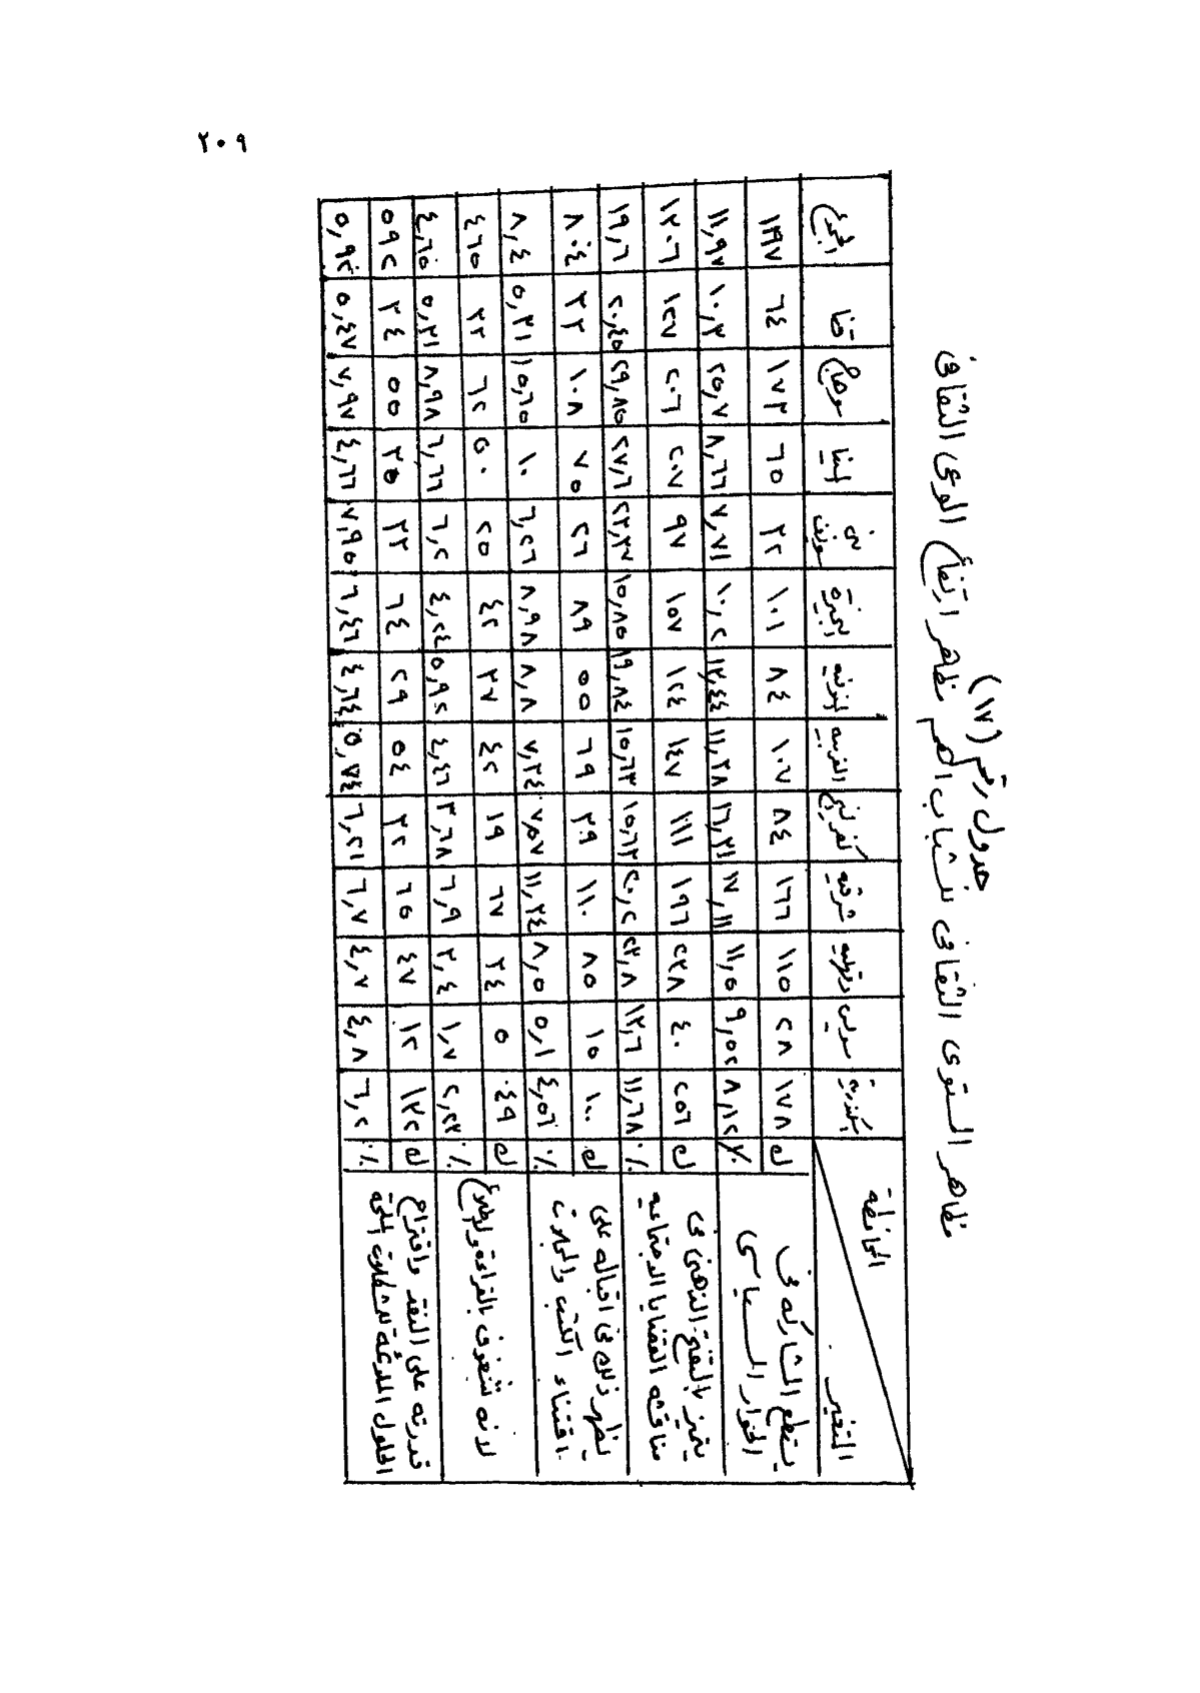 ٢٠٩
جدول رقم (١٧)
مظاهر المستوى الثقافى للشباب اهم مظاهر ارتفاع الوعى الثقافى
المحافظة
المتغير
اسكندرية سويس دقهلية شرقية كفر الشيخ الغربية المنوفية الجيزة بنى سويف المنيا سوهاج قنا المجموع
يستطيع المشاركة فى الحوار السياسى
ك ١٧٨ ٢٨ ١١٥ ١٦٦ ٨٤ ١٠٧ ٨٤ ١٠١ ٣٢ ٦٥ ١٧٣ ٦٤ ١١٩٧
٪ ٨,٨٢ ٩,٥٢ ١١,٥ ١٧,١١ ١٦,٣١ ١١,٣٨ ١٣,٤٤ ١٠,٢ ٧,٧١ ٨,٦٦ ٢٥,٧ ١٠,٣ ١١,٩٧
يتميز بالتفتح الذهنى فى مناقشة القضايا الاجتماعية
ك ٢٥٦ ٤٠ ٢٢٨ ١٩٦ ١١١ ١٤٧ ١٢٤ ١٥٧ ٩٧ ٢٠٧ ٢٠٦ ١٢٧ ١٢٠٦
٪ ١١,٦٨ ١٣,٦ ٢٢,٨ ٢٠,٢ ١٥,٦٣ ١٥,٦٣ ١٩,٨٤ ١٥,٨٥ ٢٣,٣٧ ٢٧,٦ ٢٩,٨٥ ٢٠,٤٥ ١٩,٦
يظهر ذلك فى اقباله على اقتناء الكتب والمجلات
ك ١٠٠ ١٥ ٨٥ ١١٠ ٣٩ ٦٩ ٥٥ ٨٩ ٢٦ ٧٥ ١٠٨ ٣٣ ٨٠٤
٪ ٤,٥٦ ٥,١ ٨,٥ ١١,٣٤ ٧,٥٧ ٧,٣٤ ٨,٨ ٨,٩٨ ٦,٢٦ ١٠ ١٥,٦٥ ٥,٣١ ٨,٤
لانه شغوف بالقراءة والاطلاع
ك ٤٩ ٥ ٣٤ ٦٧ ١٩ ٤٢ ٣٧ ٤٢ ٢٥ ٥٠ ٦٢ ٣٣ ٤٦٥
٪ ٢,٢٣ ١,٧ ٣,٤ ٦,٩ ٣,٦٨ ٤,٤٦ ٥,٩٢ ٤,٢٤ ٦,٢ ٦,٦٦ ٨,٩٨ ٥,٣١ ٤,٦٥
قدرته على النقد واقتراح الحلول الملائمة للمشكلات الملحة
ك ١٣٢ ١٢ ٤٧ ٦٥ ٣٢ ٥٤ ٢٩ ٦٤ ٣٣ ٣٥ ٥٥ ٣٤ ٥٩٢
٪ ٦,٢ ٤,٨ ٤,٧ ٦,٧ ٦,٢١ ٥,٧٤ ٤,٦٤ ٦,٤٦ ٧,٩٥ ٤,٦٦ ٧,٩٧ ٥,٤٧ ٥,٩٢